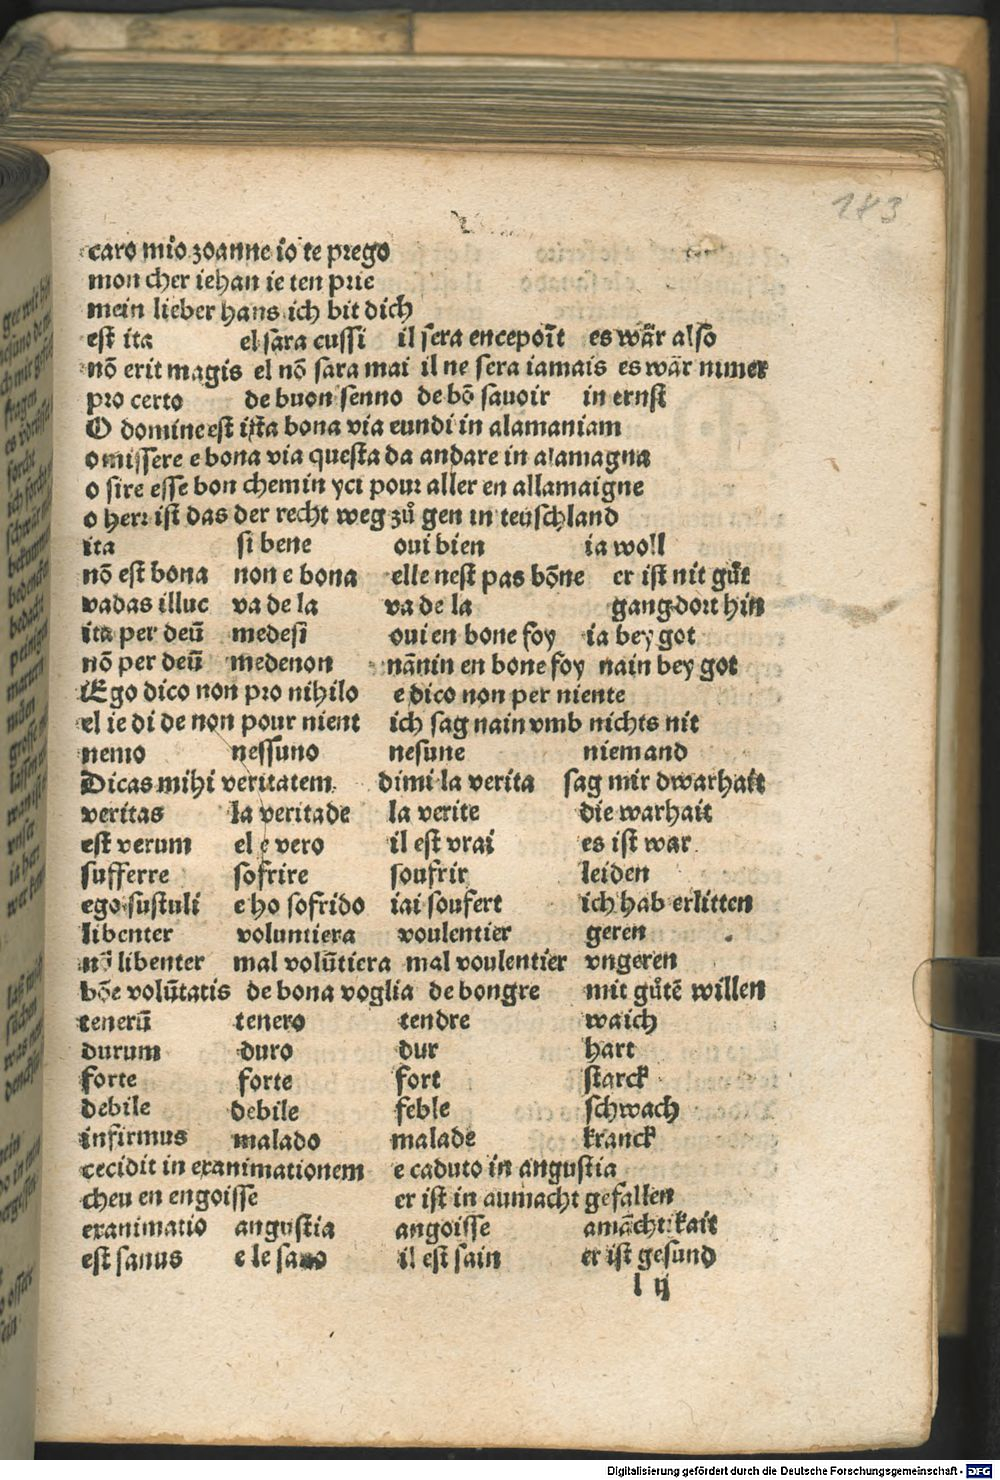 183
caro mio zoanne io te prego
mon cher iehan ie ten prie
mein lieber hans ich bit dich
est ita el sara cussi il sera encepoīt es wār also
nō erit magis el nō sara mai il ne sera iamais es wār nimer
pro certo de buon senno de bō sauoir in ernst
O domine est ista bona via eundi in alamaniam
o missere e bona via questa da andare in alamagna
o sire esse bon chemin yci pour aller en allamaigne
o herr ist das der recht weg zů gen in teuschland
ita si bene oui bien ia woll
nō est bona non e bona elle nest pas bōne er ist nit gůt
vadas illuc va de la va de la gang dort hin
ita per deū medesi oui en bone foy ia bey got
nō per deū medenon nānin en bone foy nain bey got
Ego dico non pro nihilo e dico non per niente
el ie di de non pour nient ich sag nain vmb nichts nit
nemo nessuno nesune niemand
Dicas mihi veritatem dimi la verita sag mir dwarhait
veritas la veritade la verite die warhait
est verum el e vero il est vrai es ist war
sufferre sofrire soufrir leiden
ego sustuli e ho sofrido iai soufert ich hab erlitten
libenter voluntiera voulentier geren
nō libenter mal volūtiera mal voulentier vngeren
bōe volūtatis de bona voglia de bongre mit gůtē willen
tenerū tenero tendre waich
durum duro dur hart
forte forte fort starck
debile debile feble schwach
infirmus malado malade kranck
cecidit in exanimationem e caduto in angustia
cheu en engoisse er ist in aumacht gefallen
exanimatio angustia angoisse amāchtikait
est sanus e le sano il est sain er ist gesund
l ij
Digitalisierung gefördert durch die Deutsche Forschungsgemeinschaft - DFG